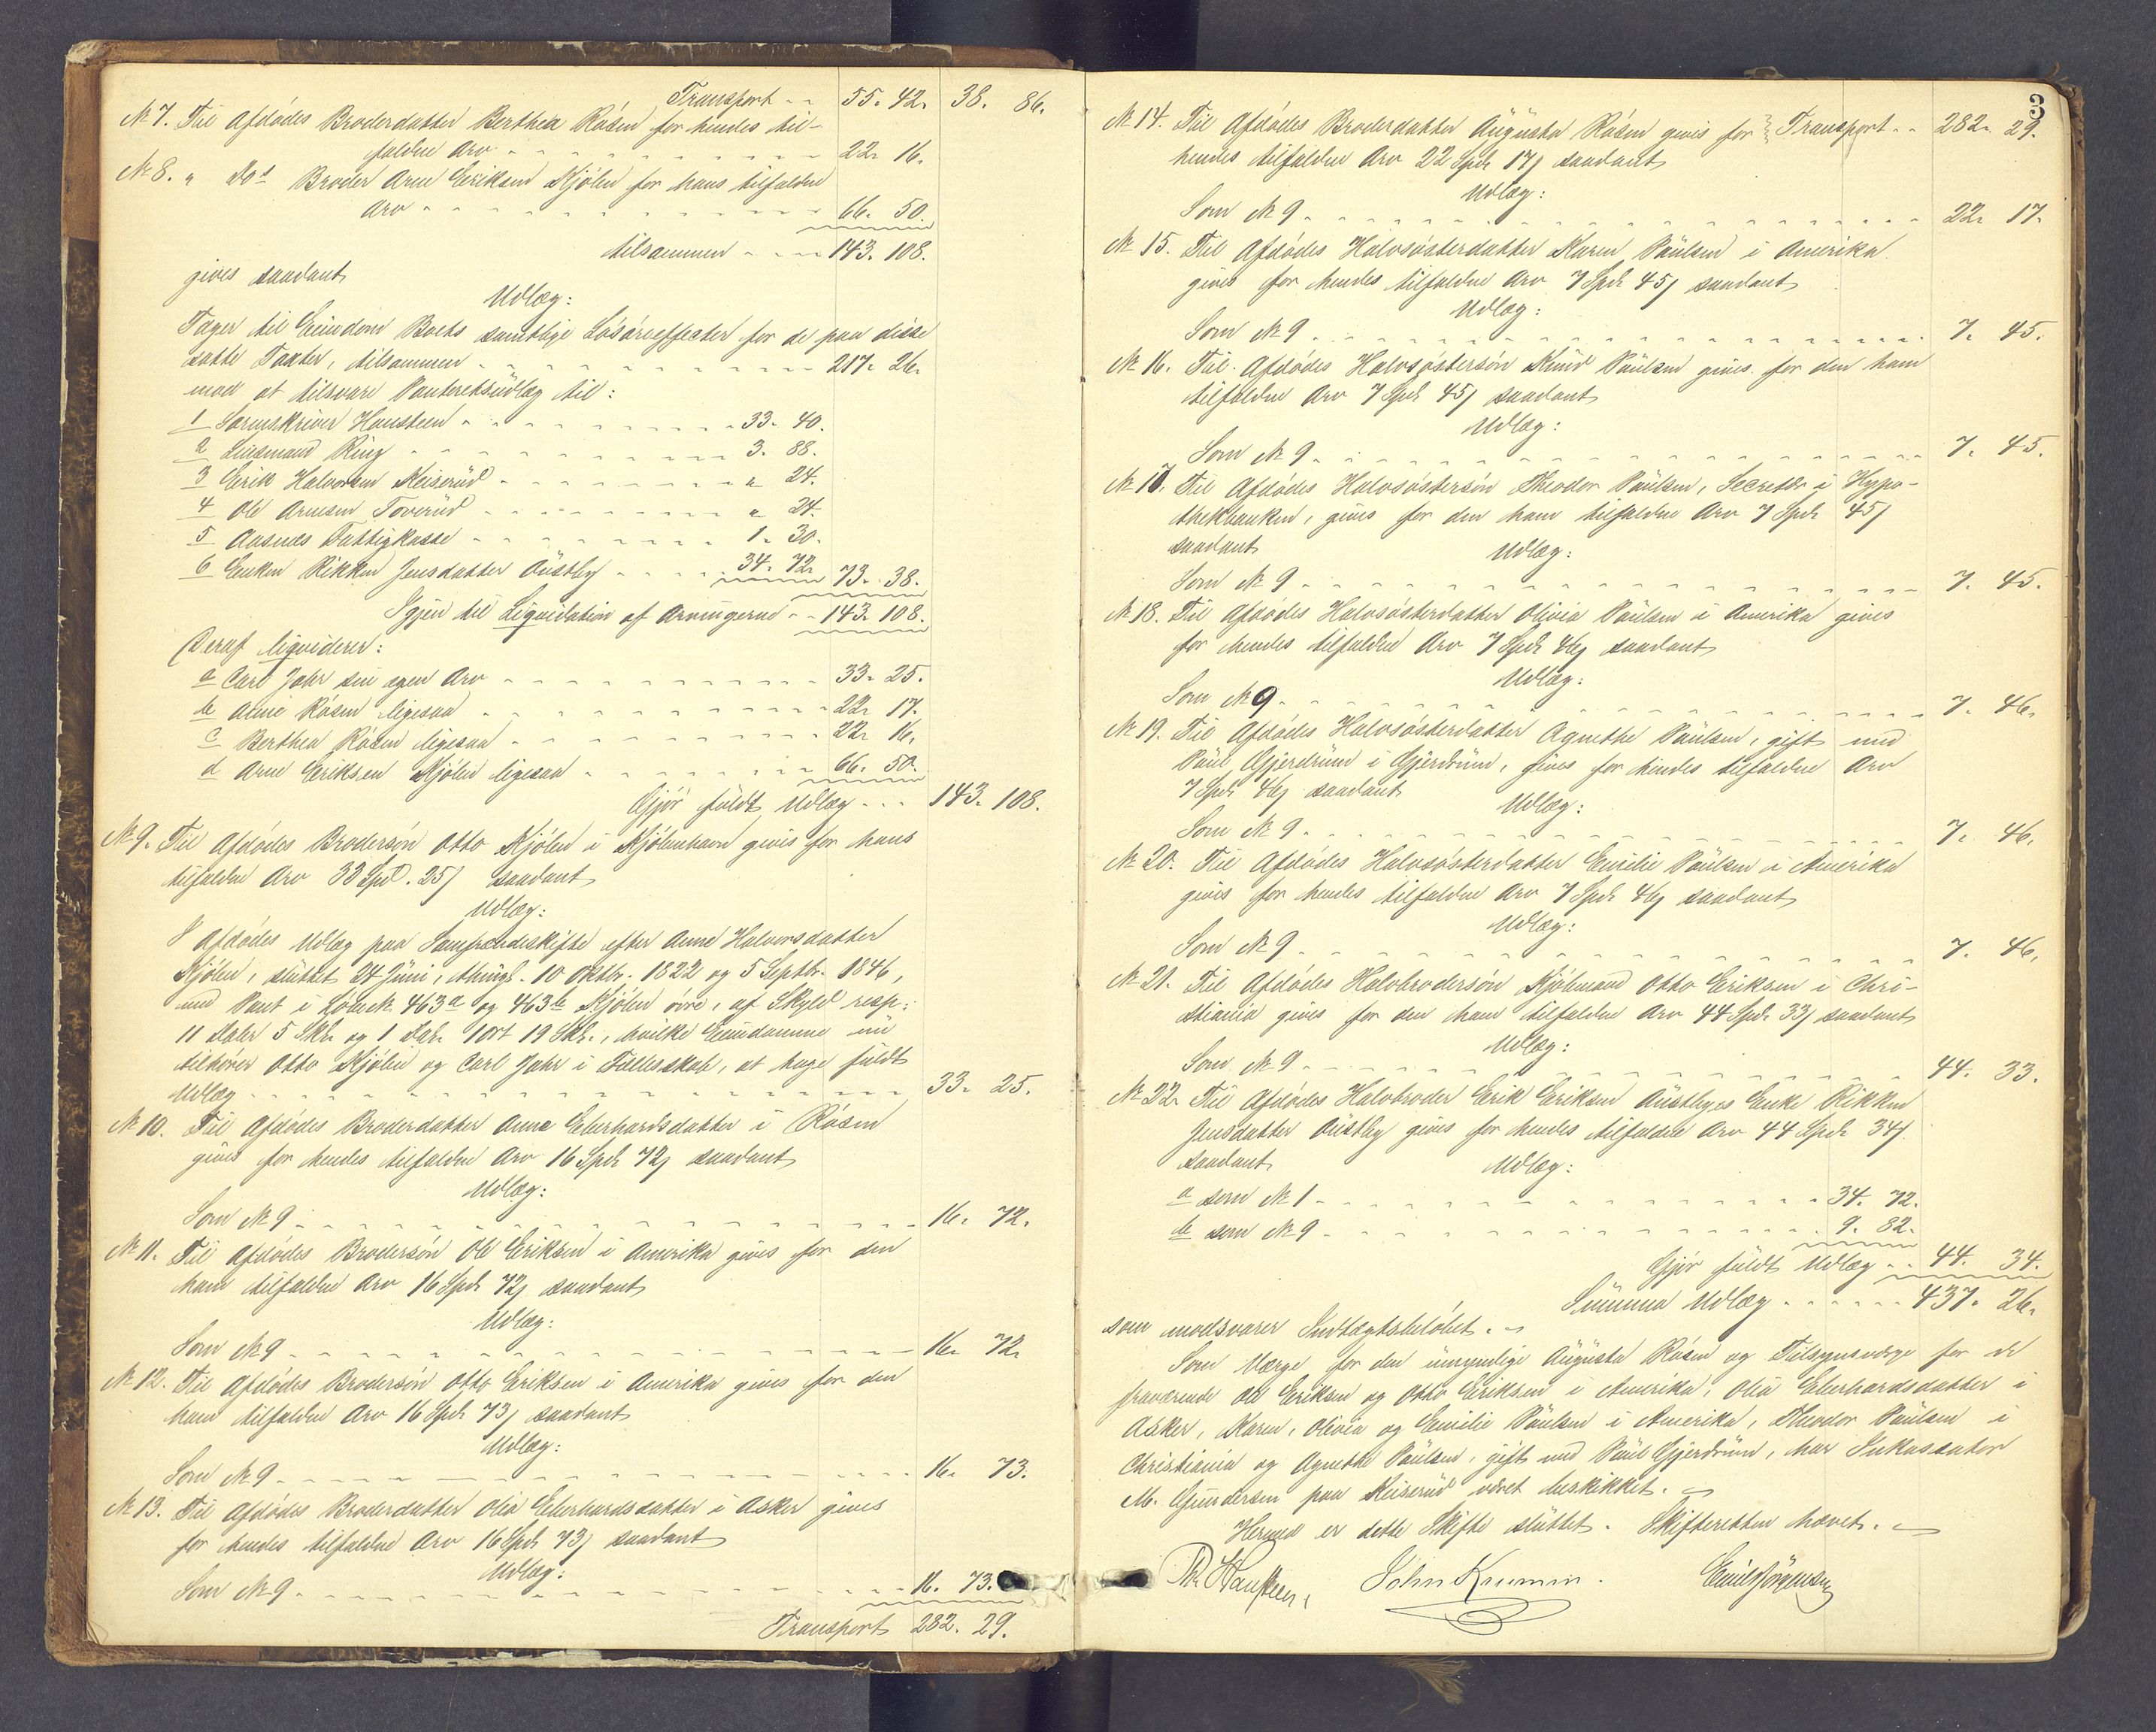 Transport - - 55. 42. 38. 86.
No 7. Til Afdødes Broderdatter Berthea Råsen for hendes til-
faldne Arv - - - 22. 16.
No 8. " Dos Broder Arne Eriksen Kjölen for hans tilfaldne
Arv - - - 66. 50.
tilsammen - - - 143. 108.
gives saadant
Udlæg:
Tager til Eiendom Boets samtlige Lösöreeffecter for de paa disse
satte Taxter, tilsammen - - - 217. 26.
mod at tilsvare Panteretsudlæg til:
1 Sorenskriver Hansteen - - - 33. 40.
2 Lensmand Ring - - - 3. 88.
3 Erik Halvorsen Keiserud - - - " 24.
4 Ole Arnesen Toverud - - - " 24.
5 Aasnes Fattigkasse - - - 1. 30.
6 Enken Rikken Jensdatter Oustby - - - 34. 72. 73. 38.
Igjen til Liqvidation af Arvingerne - - 143. 108.
Deraf liqviderer:
a Carl Johr sin egen Arv - - - 33. 25.
b Anne Råsen ligesaa - - - 22. 17.
c Berthea Råsen ligesaa - - - 22. 16.
d Arne Eriksen Kjölen ligesaa - - - 66. 50.
Gjör fuldt Udlæg - - - 143. 108.
No 9. Til Afdødes Brodersön Otto Kjölen i Kjöbenhavn gives for hans
tilfaldne Arv 33 Spd. 25 s saadant
Udlæg:
I Afdødes Udlæg paa Samfrændeskifte efter Anne Halvorsdatter
Kjölen, sluttet 24 Juni, thingl. 10 Oktbr. 1822 og 5 Septbr. 1846,
med Pant i Löbe No 463a og 463b Kjölen övre, af Skyld resp:
11 Daler 5 Skl. og 1 Dal. 1 ort 19 Skl., hvilke Eiendomme nu
tilhörer Otto Kjölen og Carl Johr i Fællesskab, at tage fuldt
Udlæg - - - 33. 25.
No 10. Til Afdødes Broderdatter Anna Eberhardsdatter i Råsen
gives for hendes tilfaldne Arv 16 Spd. 72 s saadant
Udlæg:
Som No 9 - - - 16. 72.
No 11. Til Afdødes Brodersön Ole Eriksen i Amerika gives for den
ham tilfaldne Arv 16 Spd. 72 s saadant
Udlæg:
Som No 9 - - - 16. 72.
No 12. Til Afdødes Brodersön Otto Eriksen i Amerika gives for den
ham tilfaldne Arv 16 Spd. 73 s saadant
Udlæg:
Som No 9 - - - 16. 73.
No 13. Til Afdødes Broderdatter Olia Eberhardsdatter i Asker gives
for hendes tilfaldne Arv 16 Spd. 73 s saadant
Udlæg:
Som No 9 - - - 16. 73.
Transport 282. 29.
3
No 14. Til Afdødes Broderdatter Augusta Råsen gives for Transport - - 282. 29.
hendes tilfaldne Arv 22 Spd. 17 s saadant
Udlæg:
Som No 9 - - - 22. 17.
No 15. Til Afdødes Halvsösterdatter Karen Paulsen i Amerika
gives for hendes tilfaldne Arv 7 Spd. 45 s saadant
Udlæg:
Som No 9 - - - 7. 45.
No 16. Til Afdødes Halvsöstersön Knud Paulsen gives for den ham
tilfaldne Arv 7 Spd. 45 s saadant
Udlæg:
Som No 9 - - - 7. 45.
No 17. Til Afdødes Halvsöstersön Theodor Paulsen, Secretær i Hypo-
thekbanken, gives for den ham tilfaldne Arv 7 Spd. 45 s
saadant
Udlæg:
Som No 9 - - - 7. 45.
No 18. Til Afdødes Halvsösterdatter Olivia Paulsen i Amerika gives
for hendes tilfaldne Arv 7 Spd. 46 s saadant
Udlæg:
Som No 9 - - - 7. 46.
No 19. Til Afdødes Halvsösterdatter Agnethe Paulsen, gift med
Paul Gjerdrum i Gjerdrum, gives for hendes tilfaldne Arv
7 Spd. 46 s saadant
Udlæg:
Som No 9 - - - 7. 46.
No 20. Til Afdødes Halvsösterdatter Emilie Paulsen i Amerika
gives for hendes tilfaldne Arv 7 Spd. 46 s saadant
Udlæg:
Som No 9 - - - 7. 46.
No 21. Til Afdødes Halvbrodersön Kjöbmand Otto Eriksen i Chri-
stiania gives for den ham tilfaldne Arv 44 Spd. 33 s saadant
Udlæg:
Som No 9 - - - 44. 33.
No 22. Til Afdødes Halvbroder Erik Eriksen Austbyes Enke Rikken
Jensdatter Oustby gives for hendes tilfaldne Arv 44 Spd. 34 s
saadant
Udlæg:
a som No 1 - - - 34. 72.
b som No 9 - - - 9. 82.
Gjör fuldt Udlæg - - 44. 34.
Summa Udlæg - - - 437. 26.
som modsvarer Indtægtsbelöbet.
Som Værge for den umyndige Augusta Råsen og Tilsynsværge for de
fraværende Ole Eriksen og Otto Eriksen i Amerika, Olia Eberhardsdatter i
Asker, Karen, Olivia og Emilie Paulsen i Amerika, Theodor Paulsen i
Christiania og Agnethe Paulsen, gift med Paul Gjerdrum, har Inkassator
M. Gundersen paa Keiserud været beskikket.
Hermed er dette Skifte sluttet. Skifteretten hævet.
Hansteen, John Krumin. Emil Jörgensen